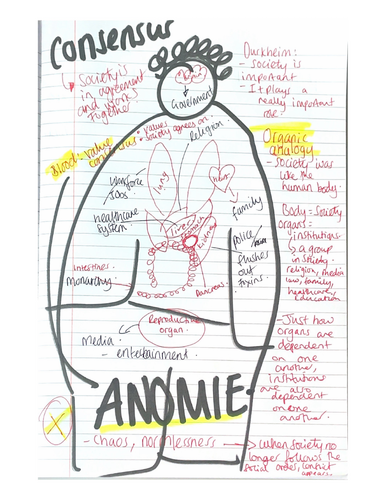 Consensus
↳ Society is
in agreement
and works
together
Durkheim:
- society is
important
- It plays a
really important
role
Government
Blood: value
consensus
: values
society agrees on
Religion
Organic
analogy
- society was
like the
human body.
Body = society
organs =
institutions
↳ a group
in society.
religion, media
law, family,
healthcare,
education
lung
heart
family
Workforce
Jobs
healthcare
system
liver
stomach
kidney
police/
flushes
out
toxins.
intestines
monarchy
Pancreas
Reproductive
organ
media
- entertainment
- Just how
organs are
dependent
on one
another,
institutions
are also
dependent
on one
another.
ANOMIE
X
- Chaos, normlessness → When society no
longer follows the
social order, conflict
appears